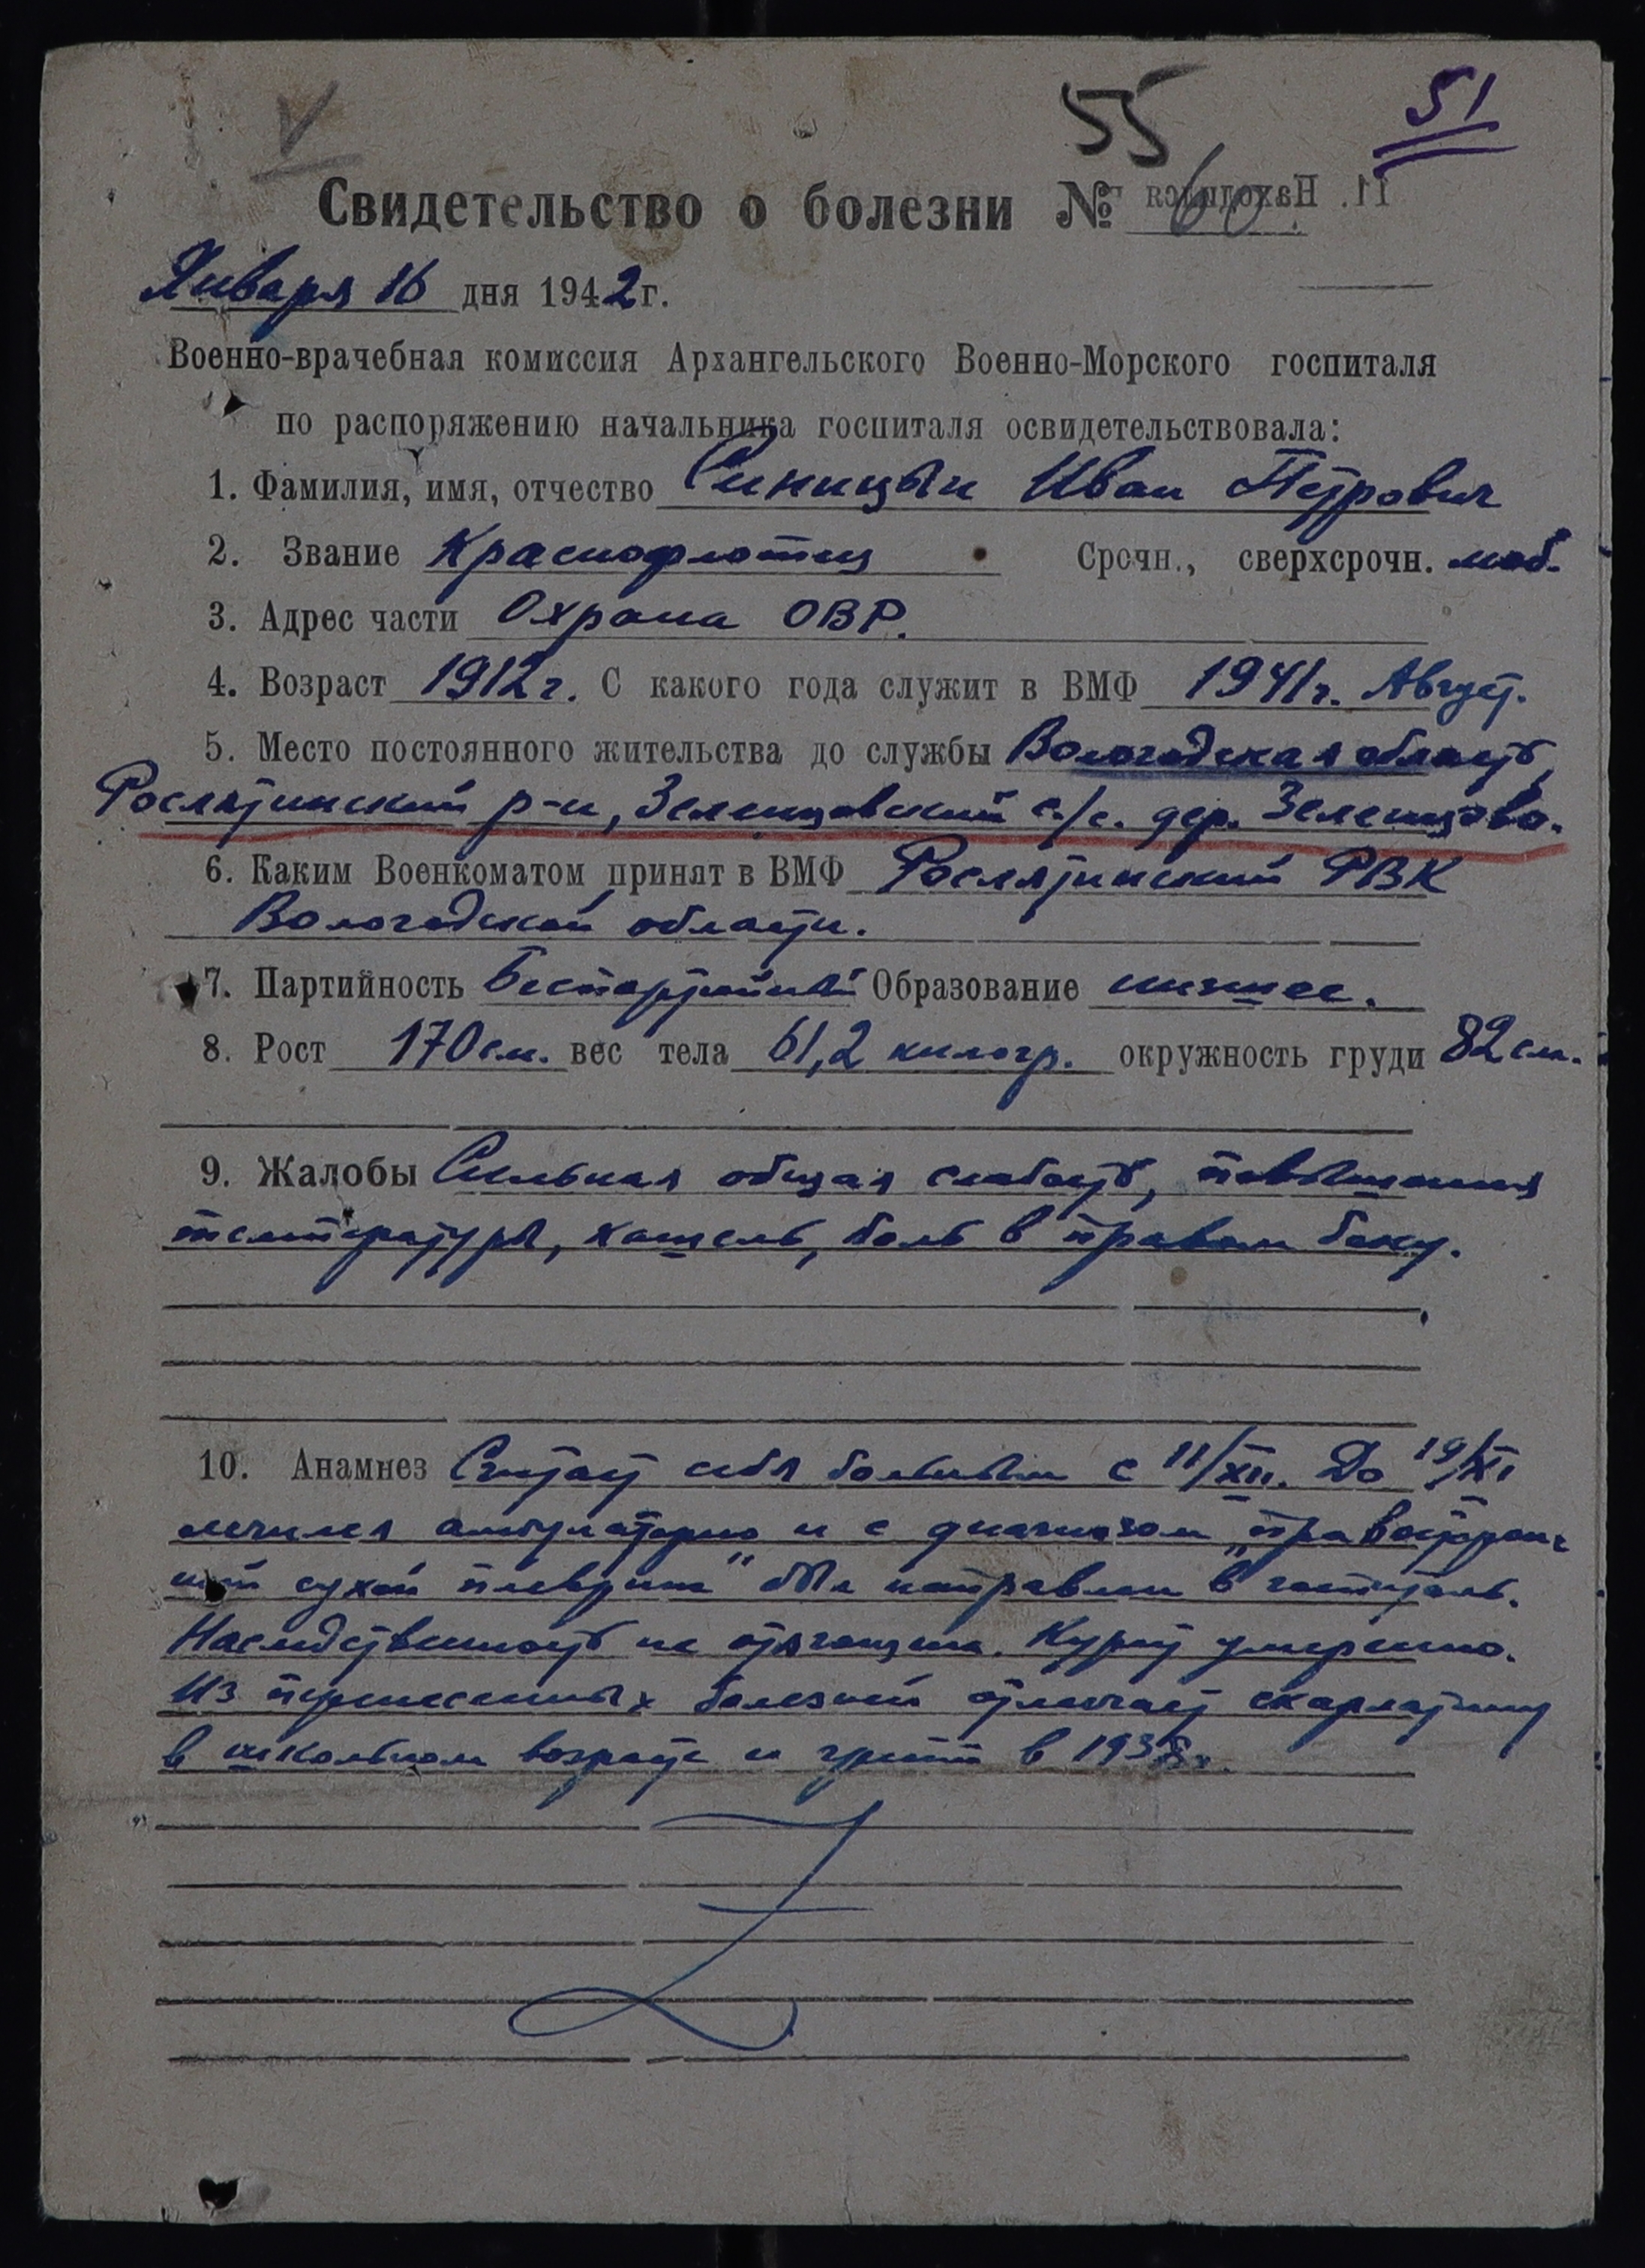 55
51
Свидетельство о болезни № 60
11. Находился
Января 16 дня 1942 г.
Военно-врачебная комиссия Архангельского Военно-Морского госпиталя
по распоряжению начальника госпиталя освидетельствовала:
1. Фамилия, имя, отчество Синицын Иван Петрович
2. Звание Краснофлотец Срочн., сверхсрочн. моб.
3. Адрес части Охрана ОВР.
4. Возраст 1912 г. С какого года служит в ВМФ 1941 г. Август.
5. Место постоянного жительства до службы Вологодская область,
Рослятинский р-н, Зеленцовский с/с. дер. Зеленцово.
6. Каким Военкоматом принят в ВМФ Рослятинский РВК
Вологодской области.
7. Партийность Беспартийный Образование низшее.
8. Рост 170 см. вес тела 61,2 килогр. окружность груди 82 см.
9. Жалобы Сильная общая слабость, повышения
температуры, кашель, боль в правом боку.
10. Анамнез Считает себя больным с 11/XII. До 19/XI
лечился амбулаторно и с диагнозом „правосторон-
ний сухой плеврит" был направлен в госпиталь.
Наследственность не отягощена. Курит умеренно.
Из перенесенных болезней отмечает скарлатину
в школьном возрасте и грипп в 1938 г.